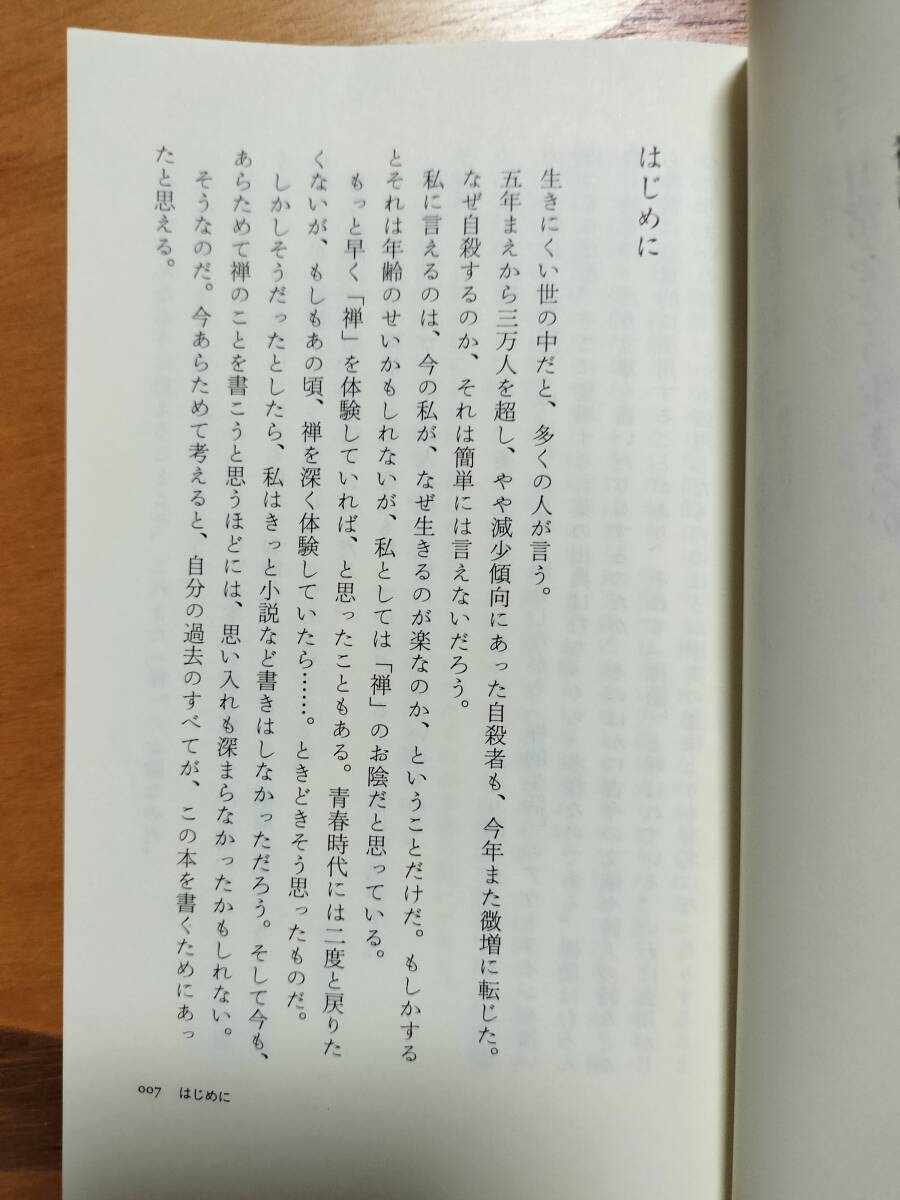 はじめに
生きにくい世の中だと、多くの人が言う。
五年まえから三万人を超し、やや減少傾向にあった自殺者も、今年また微増に転じた。
なぜ自殺するのか、それは簡単には言えないだろう。
私に言えるのは、今の私が、なぜ生きるのが楽なのか、ということだけだ。もしかする
とそれは年齢のせいかもしれないが、私としては「禅」のお陰だと思っている。
もっと早く「禅」を体験していれば、と思ったこともある。青春時代には二度と戻りた
くないが、もしもあの頃、禅を深く体験していたら……。ときどきそう思ったものだ。
しかしそうだったとしたら、私はきっと小説など書きはしなかっただろう。そして今も、
あらためて禅のことを書こうと思うほどには、思い入れも深まらなかったかもしれない。
そうなのだ。今あらためて考えると、自分の過去のすべてが、この本を書くためにあっ
たと思える。
007 はじめに